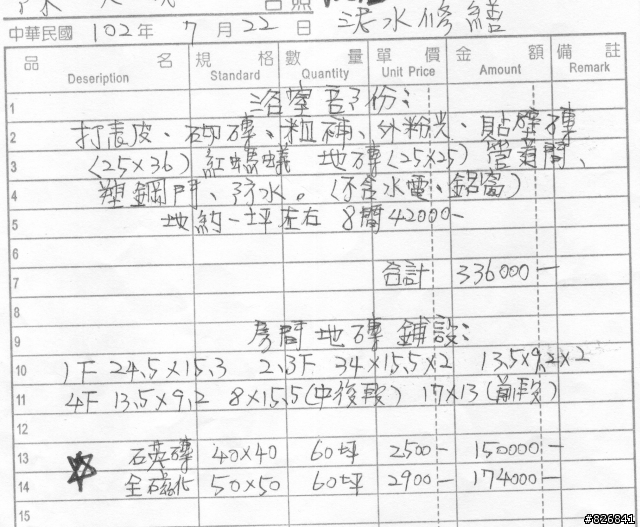 台照
中華民國 102年 7月22日 泥水修繕
品名 Deseription 規格 Standard 數量 Quantity 單價 Unit Price 金額 Amount 備註 Remark
1 浴室部份:
2 打表皮、砌磚、粗補、外粉光、貼壁磚
3 (25X36) 紅螞蟻 地磚(25X25)
4 塑鋼門、防水。(不含水電、鋁窗)
5 地約一坪左右 8間42000-
6
7 合計 336000-
8
9 房間地磚鋪設:
10 1F 24.5X15.3 2.3F 34X15.5X2 13.5X9.2X2
11 4F 13.5X9.2 8X15.5(中後段) 17X13(前段)
12
13 石英磚 40X40 60坪 2500- 150000-
14 全磁化 50X50 60坪 2900- 174000-
15
#826841